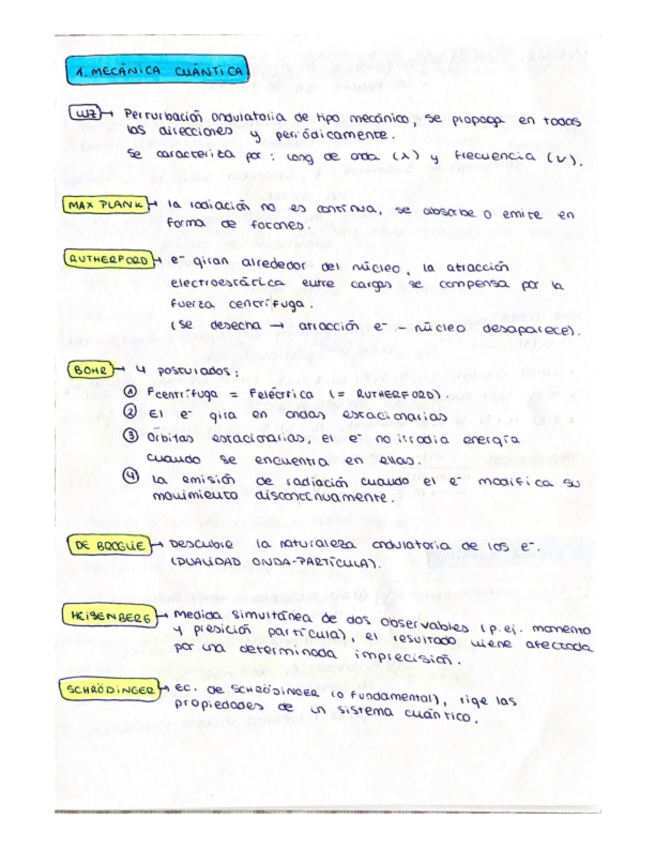 1. MECÁNICA CUÁNTICA
LUZ → Perturbación ondulatoria de tipo mecánico, se propaga en todas
las direcciones y periódicamente.
Se caracteriza por : long de onda (λ) y frecuencia (ν).
MAX PLANK → la radiación no es continua, se absorbe o emite en
forma de fotones.
RUTHERFORD → e⁻ giran alrededor del núcleo, la atracción
electroestática entre cargas se compensa por la
fuerza centrífuga.
(Se desecha → atracción e⁻ – núcleo desaparece).
BOHR → 4 postulados:
① Fcentrífuga = Feléctrica (= RUTHERFORD).
② El e⁻ gira en ondas estacionarias
③ Órbitas estacionarias, el e⁻ no irradia energía
cuando se encuentra en ellas.
④ La emisión de radiación cuando el e⁻ modifica su
movimiento discontinuamente.
DE BROGLIE → Descubre la naturaleza ondulatoria de los e⁻.
(DUALIDAD ONDA-PARTÍCULA).
HEISENBERG → Medida simultánea de dos observables (p.ej. momento
y presición partícula), el resultado viene afectada
por una determinada imprecisión.
SCHRÖDINGER → EC. de SCHRÖDINGER (o fundamental), rige las
propiedades de un sistema cuántico.